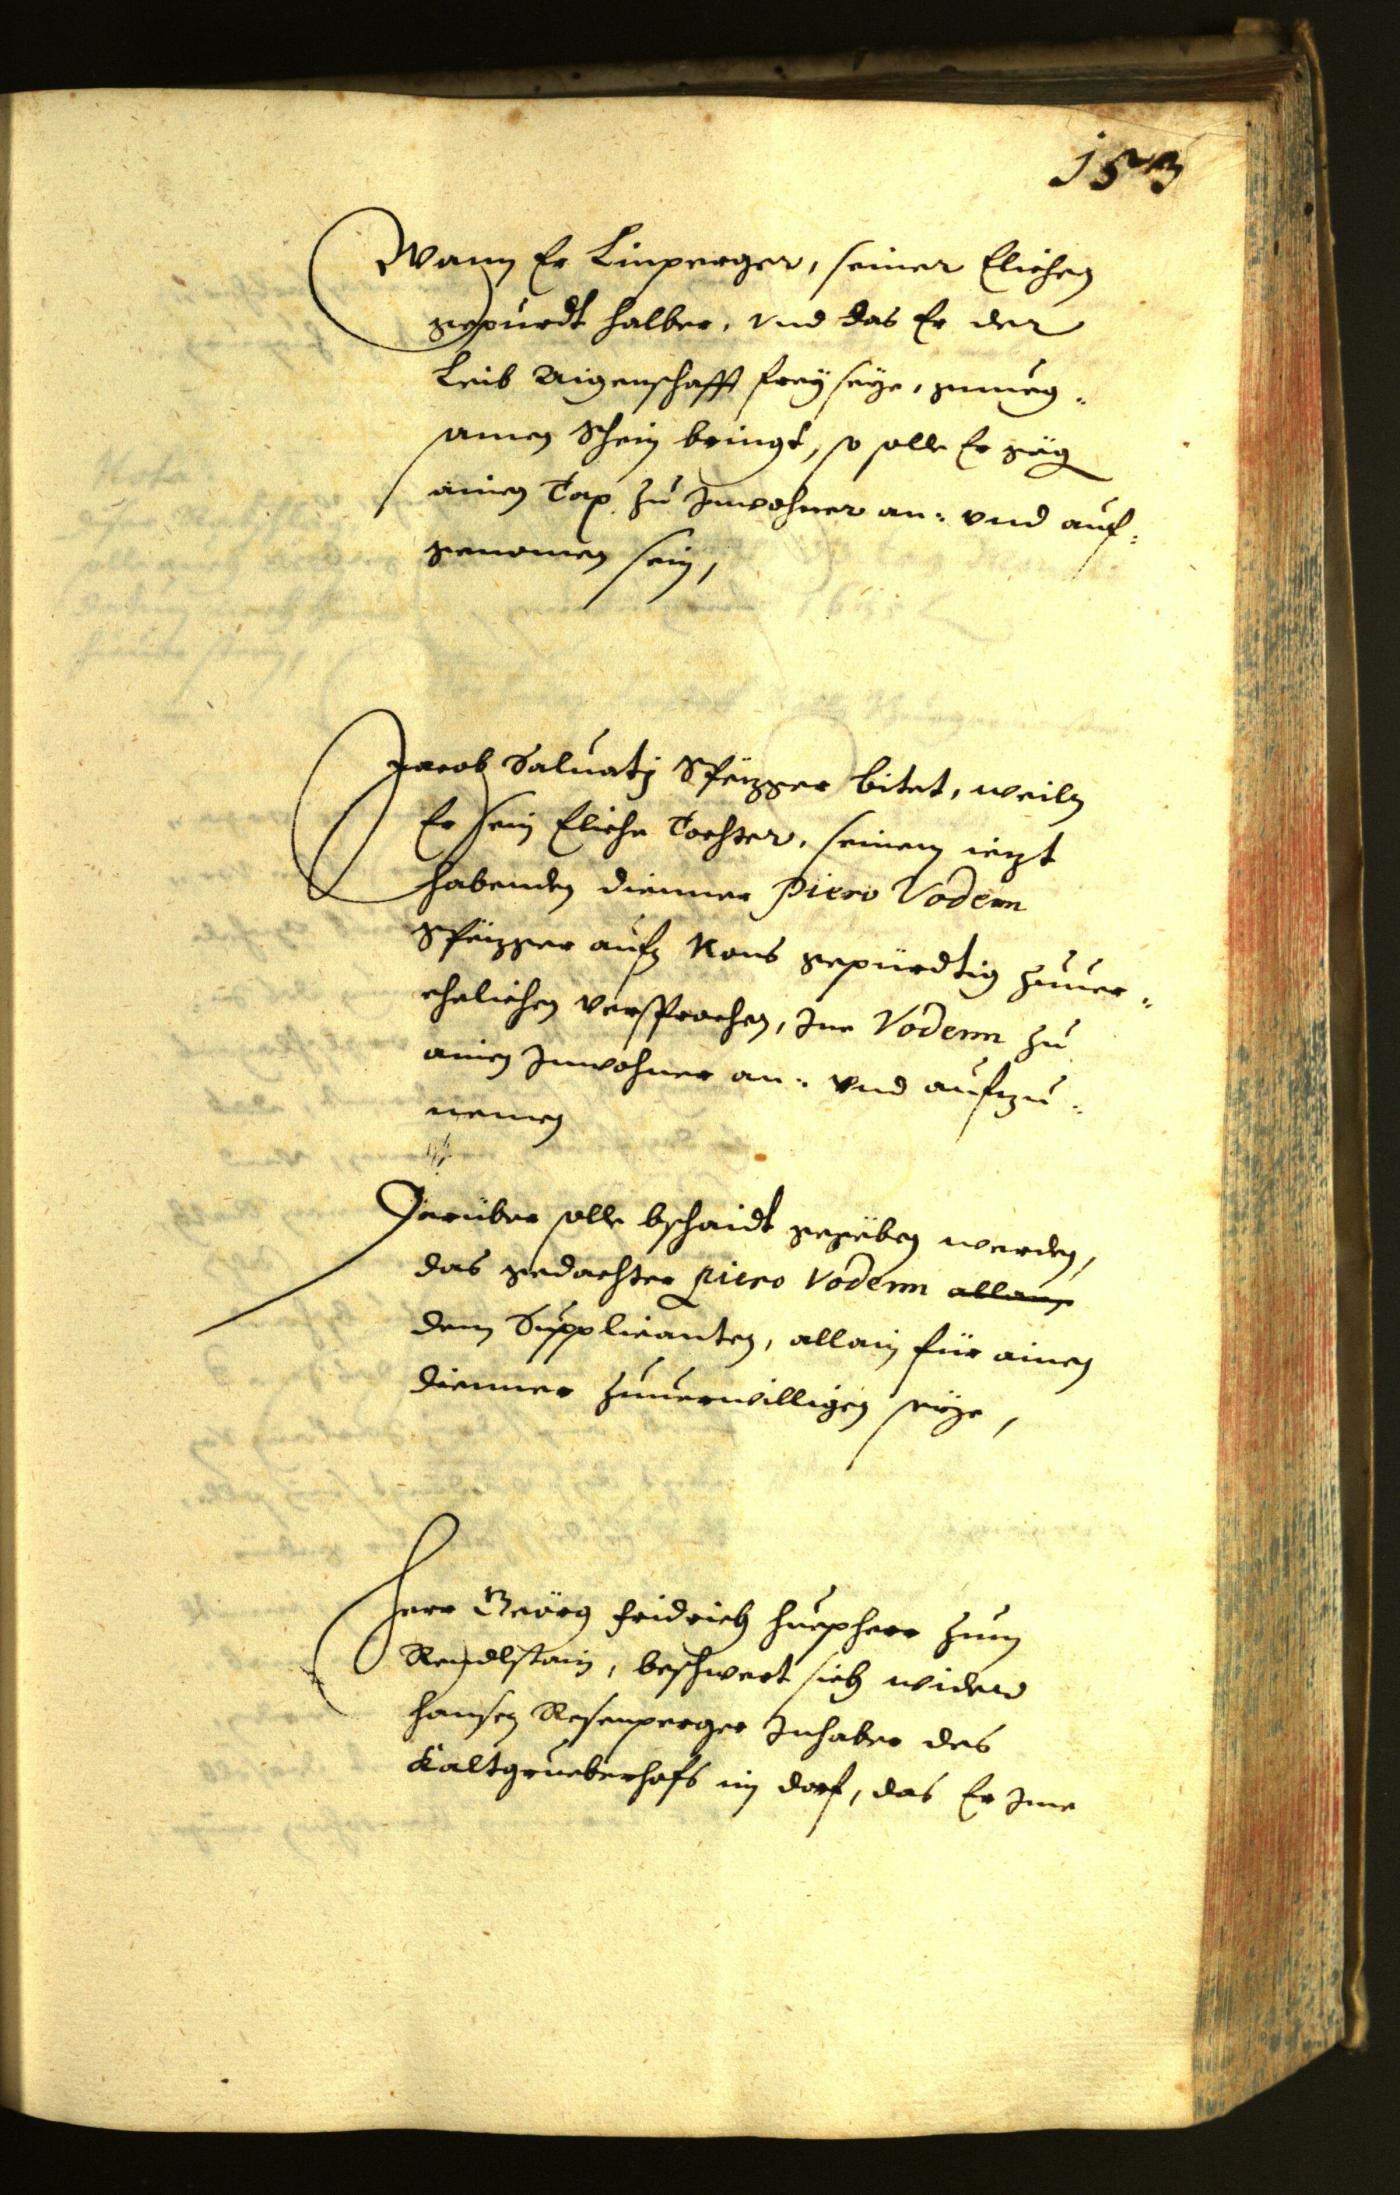 153
Wann Er Linperger, seiner Elichen
gepurdt halber, vnd das Er der
Leib Aigenschafft frey seye, gnueg¬
samen Schein bringt, so solle Er
ainen Tax zu Inwohner an- vnd auf¬
genomen sein,
Jacob Saluatj bitet, weiln
Er sein Eliche Tochter, seinem iezt
habenden dienner Piero Vodem
aufm Nons gepürdtig zuuer¬
ehelichen versprochen, Ine Vodem zu
ainen Inwohner an- vnd aufzu¬
nemen
Darüber solle bschaidt gegeben werden,
das gedachter Piero Vodem allain
dem Supplicanten, allain für ainen
dienner zuuerwilligen seye,
Herr Geörg Fridrich Huepherr zum
Rendlstain, beschwert sich wider
Hansen Rosenperger Inhaber des
Kaltgrueberhofs im dorf, das Er Ime